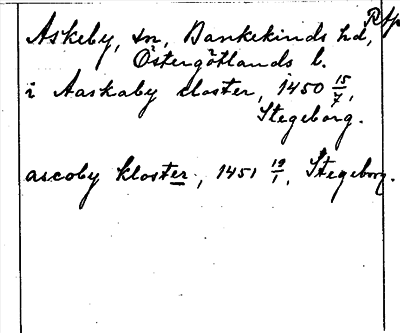 Rtp
Askeby, sn, Bankekinds hd,
Östergötlands l.
i Aaskaby closter, 1450 15/7,
Stegeborg.
ascoby kloster, 1451 19/1, Stegeborg.